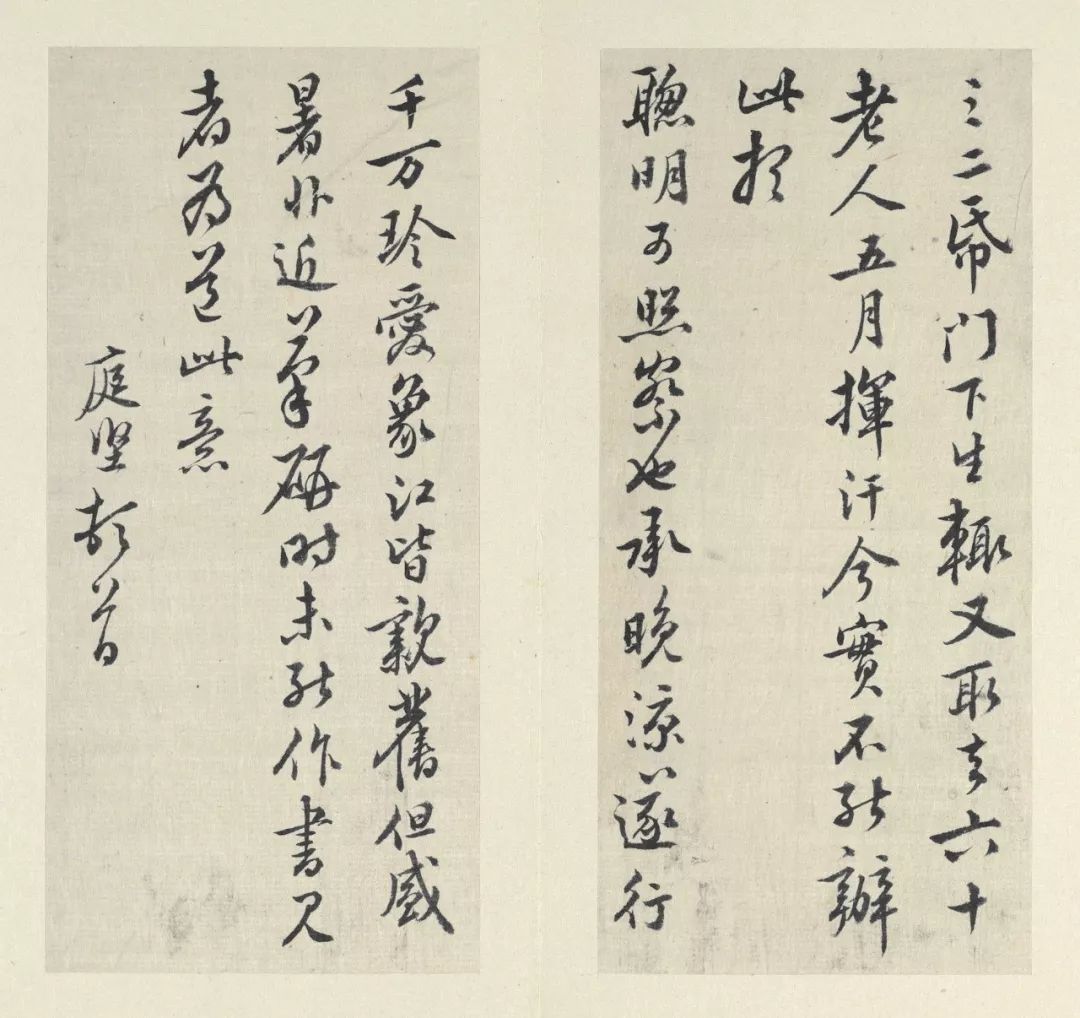 三二帋门下生輙又取去六十
老人五月揮汗今實不能辦
此想
聰明可照察也承晚涼遂行
千万珍愛象江皆親舊但盛
暑非近筆研時未能作書見
者爲道此意
庭坚頓首